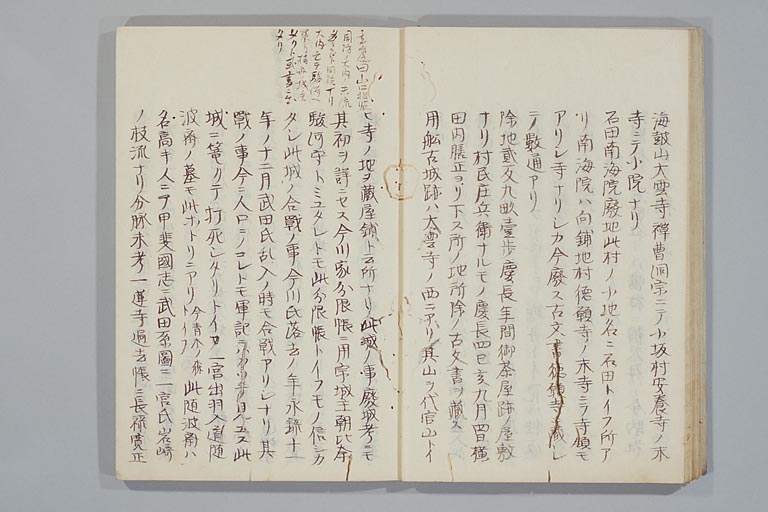 海鼓山大雲寺禅曹洞宗ニテ小坂村安養寺ノ末
寺ニテ小院ナリ
石田南海院廃地此村ノ小地名ニ石田トイフ所ア
リ南海院ハ向舗地村徳願寺ノ末寺ニテ寺領モ
アリシ寺ナリシカ今廃ス古文書徳願寺ニ蔵レ
ニノ数通アリ
除地貳反九畝壹歩慶長年間御茶屋跡ノ屋敷
ナリ村民庄兵衛ナルモノ慶長四己亥九月四日横
田内膳正ヨリ下ス所ノ地所除ノ古文書ヲ蔵ス
用舩古城跡ハ大雲寺ノ西ニアリ其山ヲ代官山トイ
ヒ寺ノ地ヲ蔵屋鋪ト云所ナリ此城ノ事廃城考ニモ
其初ヲ詳ニセス今川家分限帳ニ用宗城主朝比奈
駿河守トミエタレトモ此分限帳トイフモノ信シカ
タシ此城ノ合戦ノ事今川氏落去ノ年永録十二
年ノ十二月武田氏乱入ノ時モ合戦アリシナリ其
戦ノ事今ニ人口ニノコレトモ軍記ニハ見エス此
城ニ篭リテ打死シタリトイフ一宮出羽入道随
波斎ノ墓モ此ホトリニアリトイフ 此随波斎ハ
名高キ人ニテ甲斐國志ニ武田系圖ニ一宮氏岩崎
ノ枝流ナリ分脉未考一蓮寺過去帳ニ長禄寛正